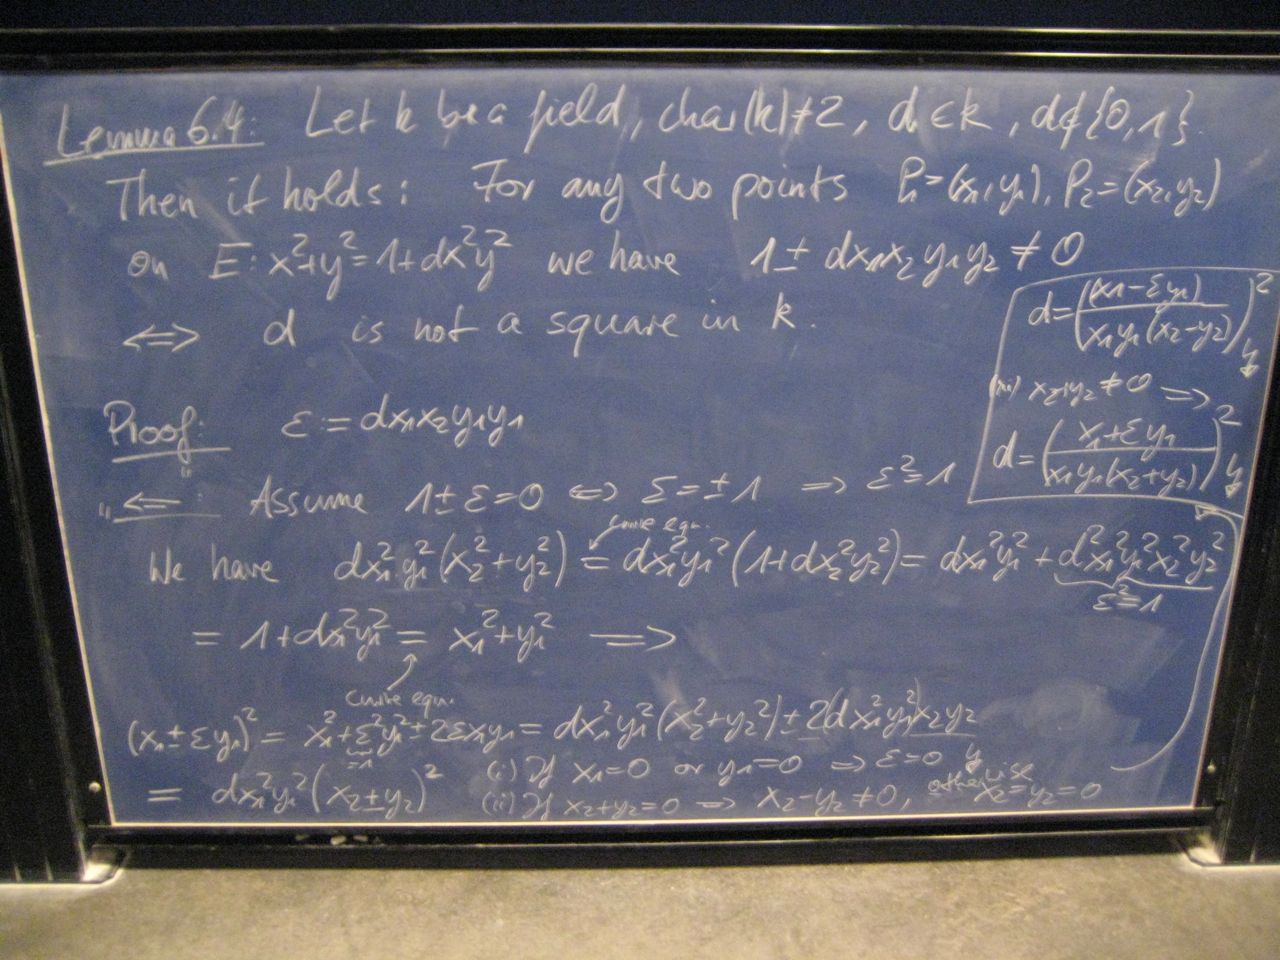 Lemma 6.4: Let k be a field, char(k)≠2, d ∈ k, d ∉ {0,1}.
Then it holds: For any two points P₁=(x₁,y₁), P₂=(x₂,y₂)
on E: x²+y²=1+dx²y² we have 1 ± dx₁x₂y₁y₂ ≠ 0
⟺ d is not a square in k.
Proof: ε := dx₁x₂y₁y₁
"⟸": Assume 1±ε=0 ⟺ ε=±1 ⟹ ε²=1
curve equ.
We have dx₁²y₁²(x₂²+y₂²) = dx₁²y₁²(1+dx₂²y₂²) = dx₁²y₁² + d²x₁²y₁²x₂²y₂²
ε²=1
= 1+dx₁²y₁² = x₁²+y₁² ⟹
curve equ.
(x₁±εy₁)² = x₁²+ε²y₁²±2εx₁y₁ = dx₁²y₁²(x₂²+y₂²)±2(dx₁²y₁²)x₂y₂
=1
= dx₁²y₁²(x₂±y₂)² (i) If x₁=0 or y₁=0 ⟹ ε=0 ↯
(ii) If x₂+y₂=0 ⟹ x₂-y₂≠0, otherwise x₂=y₂=0
d=((x₁-εy₁)/(x₁y₁(x₂-y₂)))² ↯
(iii) x₂+y₂≠0 ⟹
d=((x₁+εy₁)/(x₁y₁(x₂+y₂)))² ↯